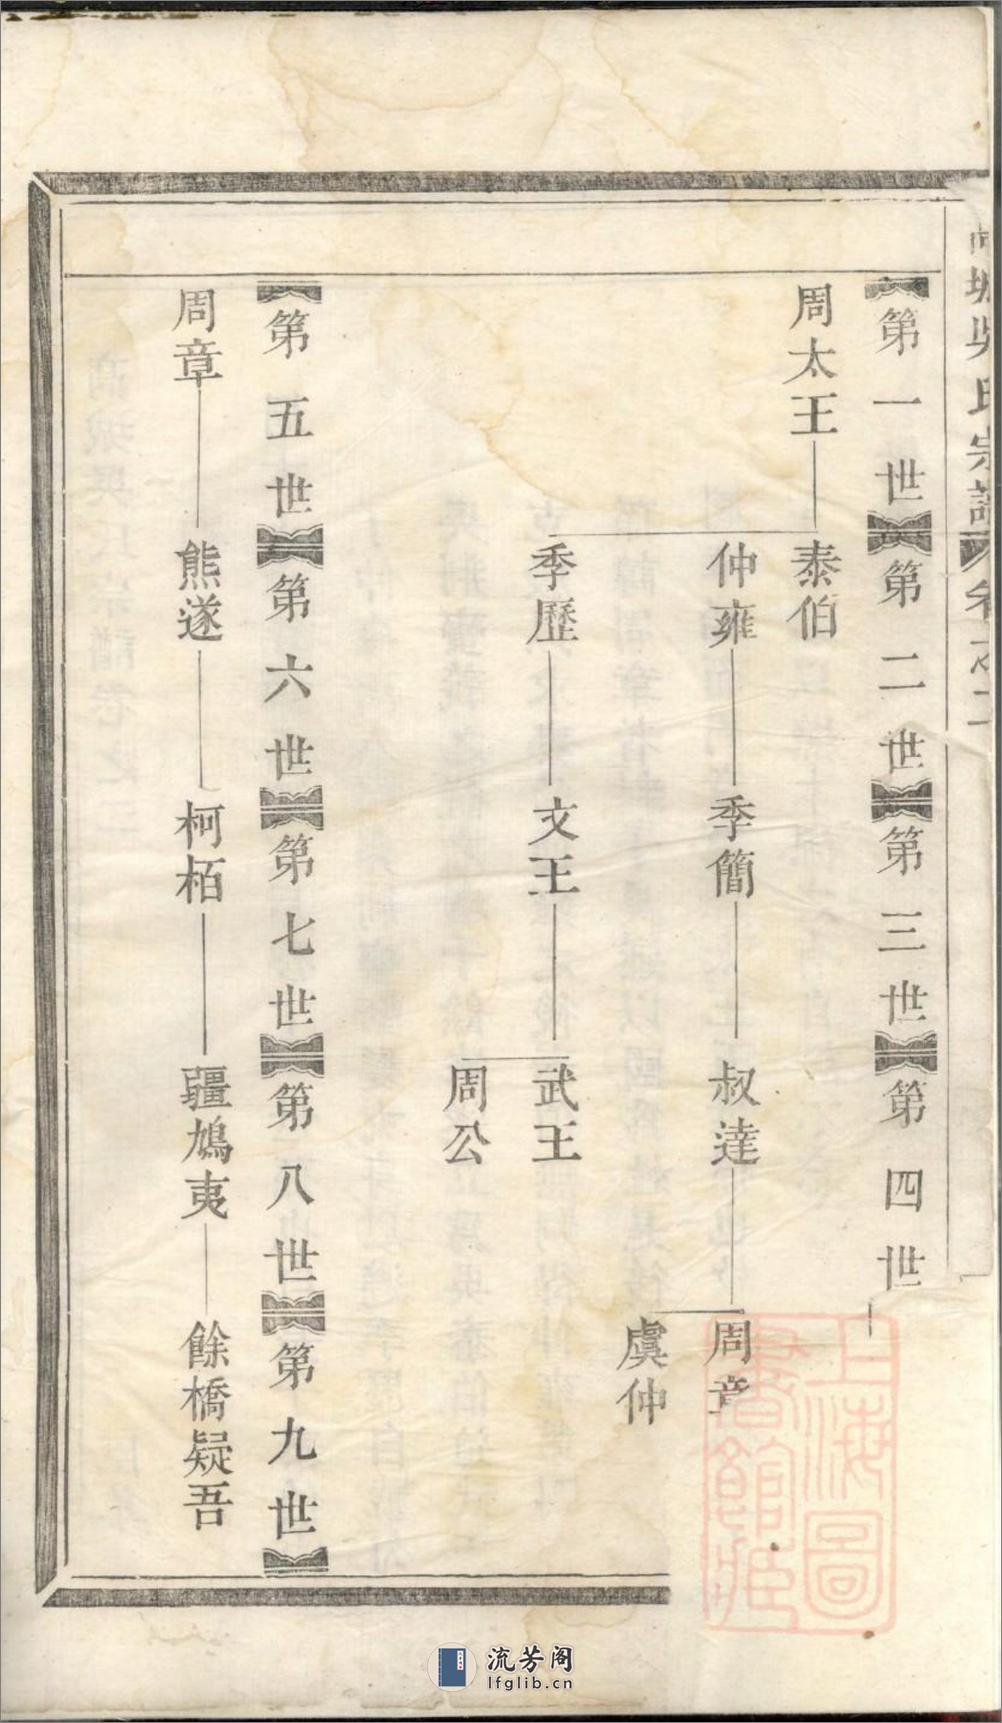 吳氏宗譜 卷之二
第一世 第二世 第三世 第四世
周太王 泰伯
仲雍 季簡 叔達 周章
虞仲
季歷 文王 武王
周公
第五世 第六世 第七世 第八世 第九世
周章 熊遂 柯栢 疆鳩夷 餘橋疑吾
上海圖
書館藏
流芳阁
lfglib.cn